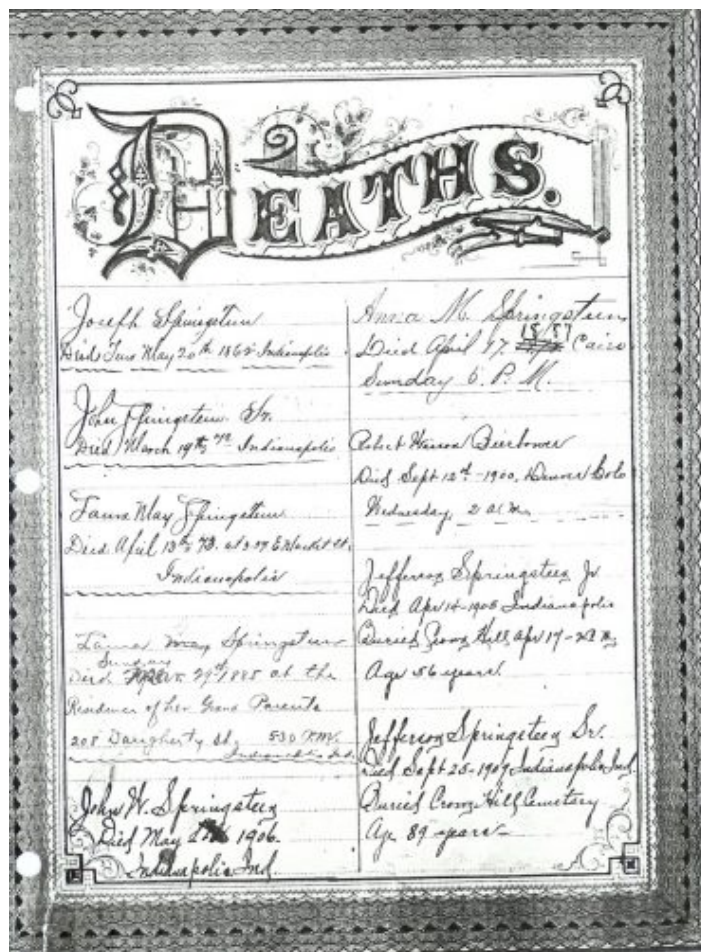 DEATHS.
Joseph Springsteen
Died Tues May 20th 1862 Indianapolis
John Springsteen Sr.
Died March 19th Indianapolis
Laura May Springsteen
Died April 13th 73. at E Market St.
Indianapolis
Laura May Springsteen
Sunday
Died 29th 1885 at the
Residence of her Grand Parents
208 Daugherty St. 530 P.M.
Indianapolis Ind.
John W. Springsteen
Died May 1906.
Indianapolis Ind.
Anna M. Springsteen
18/87
Died April 17 Cairo
Sunday 6. P. M.
Robert Bierbower
Died Sept 12th - 1900, Denver Colo
Wednesday, 2 a.m.
Jefferson Springsteen Jr
Died Apr 14 - 1908 Indianapolis
Buried Crown Hill Apr 17 - 2 P.M.
Age 56 years.
Jefferson Springsteen Sr.
Died Sept 25 - 1909 Indianapolis, Ind.
Buried Crown Hill Cemetery
Age 89 years -